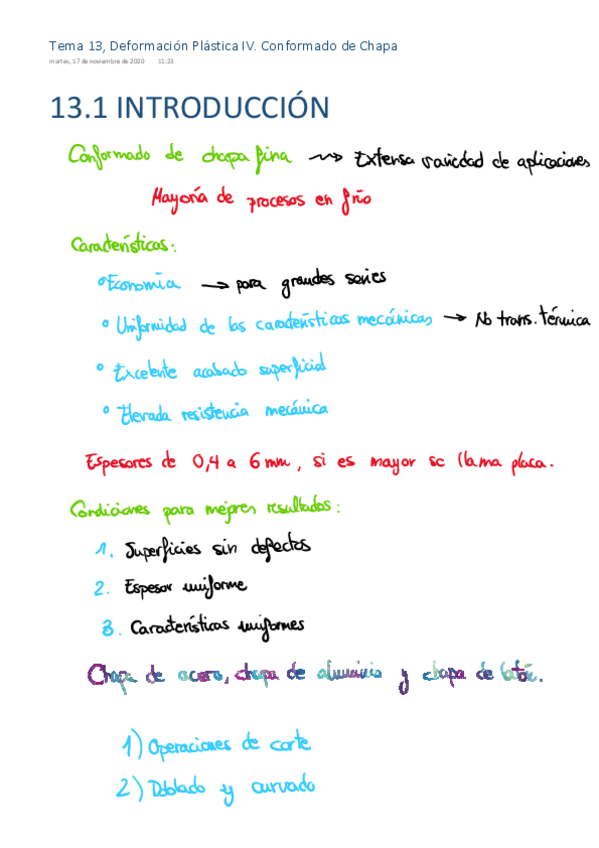 Tema 13, Deformación Plástica IV. Conformado de Chapa
martes, 17 de noviembre de 2020 11:23
13.1 INTRODUCCIÓN
Conformado de chapa fina → Extensa variedad de aplicaciones
Mayoría de procesos en frío
Características:
° Economía → para grandes series
° Uniformidad de las características mecánicas → No trans. térmica
° Excelente acabado superficial
° Elevada resistencia mecánica
Espesores de 0,4 a 6 mm, si es mayor se llama placa.
Condiciones para mejores resultados:
1. Superficies sin defectos
2. Espesor uniforme
3. Características uniformes
Chapa de acero, chapa de aluminio y chapa de latón.
1) Operaciones de corte
2) Doblado y curvado